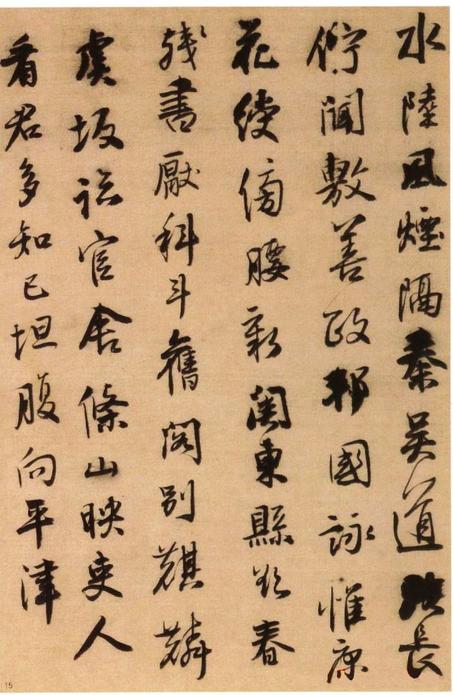 水陸風煙隔秦吳道路長
佇聞敷善政邦國詠惟康
花綬傍腰新關東縣欲春
殘書厭科斗舊閣別麒麟
虞坂臨官舍條山映吏人
看君多知己坦腹向平津
15